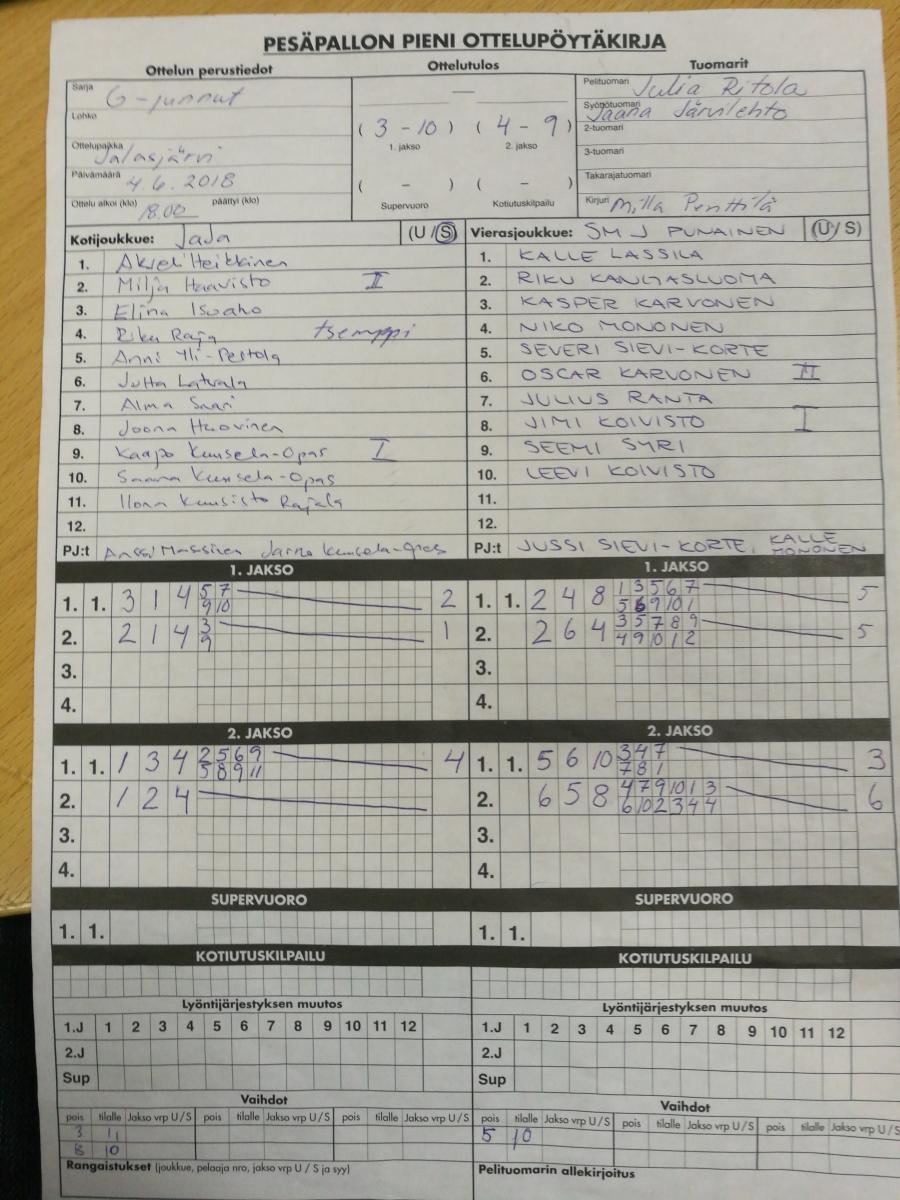 PESÄPALLON PIENI OTTELUPÖYTÄKIRJA
Ottelun perustiedot Ottelutulos Tuomarit
Sarja G-junnut
Lohko
Ottelupaikka Jalasjärvi
Päivämäärä 4.6.2018
Ottelu alkoi (klo) 18.00 päättyi (klo)
—
( 3 - 10 ) ( 4 - 9 )
1. jakso 2. jakso
( - ) ( - )
Supervuoro Kotiutuskilpailu
Pelituomari Julia Ritola
Syöttötuomari Jaana Järvilehto
2-tuomari
3-tuomari
Takarajatuomari
Kirjuri Milla Penttilä
Kotijoukkue: JaJa (U/S)
1. Akseli Heikkinen
2. Milja Haavisto II
3. Elina Isoaho
4. Riku Raja tsemppi
5. Anni Yli-Pertola
6. Jutta Latvala
7. Alma Saari
8. Joona Haavinen
9. Kaapo Kuusela-Opas I
10. Saana Kuusela-Opas
11. Ilona Kuusisto Rajala
12.
PJ:t Anssi Massinen Jarno Kuusela-Opas
Vierasjoukkue: SMJ PUNAINEN (U/S)
1. KALLE LASSILA
2. RIKU KANGASLUOMA
3. KASPER KARVONEN
4. NIKO MONONEN
5. SEVERI SIEVI-KORTE
6. OSCAR KARVONEN II
7. JULIUS RANTA
8. JIMI KOIVISTO I
9. SEEMI SYRI
10. LEEVI KOIVISTO
11.
12.
PJ:t JUSSI SIEVI-KORTE, KALLE MONONEN
1. JAKSO
1. 1. 3 1 4 5 7 2
9 10
2. 2 1 4 3 1
9
3.
4.
1. JAKSO
1. 1. 2 4 8 1 3 5 6 7 5
5 6 9 10 1
2. 2 6 4 3 5 7 8 9 5
4 9 10 1 2
3.
4.
2. JAKSO
1. 1. 1 3 4 2 5 6 9 4
5 8 9 11
2. 1 2 4
3.
4.
2. JAKSO
1. 1. 5 6 10 3 4 7 3
7 8 1
2. 6 5 8 4 7 9 10 1 3 6
6 10 2 3 4 4
3.
4.
SUPERVUORO
1. 1.
SUPERVUORO
1. 1.
KOTIUTUSKILPAILU
KOTIUTUSKILPAILU
Lyöntijärjestyksen muutos
1.J 1 2 3 4 5 6 7 8 9 10 11 12
2.J
Sup
Lyöntijärjestyksen muutos
1.J 1 2 3 4 5 6 7 8 9 10 11 12
2.J
Sup
Vaihdot
pois tilalle Jakso vrp U/S pois tilalle Jakso vrp U/S pois tilalle Jakso vrp U/S
3 11
8 10
Vaihdot
pois tilalle Jakso vrp U/S pois tilalle Jakso vrp U/S pois tilalle Jakso vrp U/S
5 10
Rangaistukset (joukkue, pelaaja nro, jakso vrp U / S ja syy)
Pelituomarin allekirjoitus